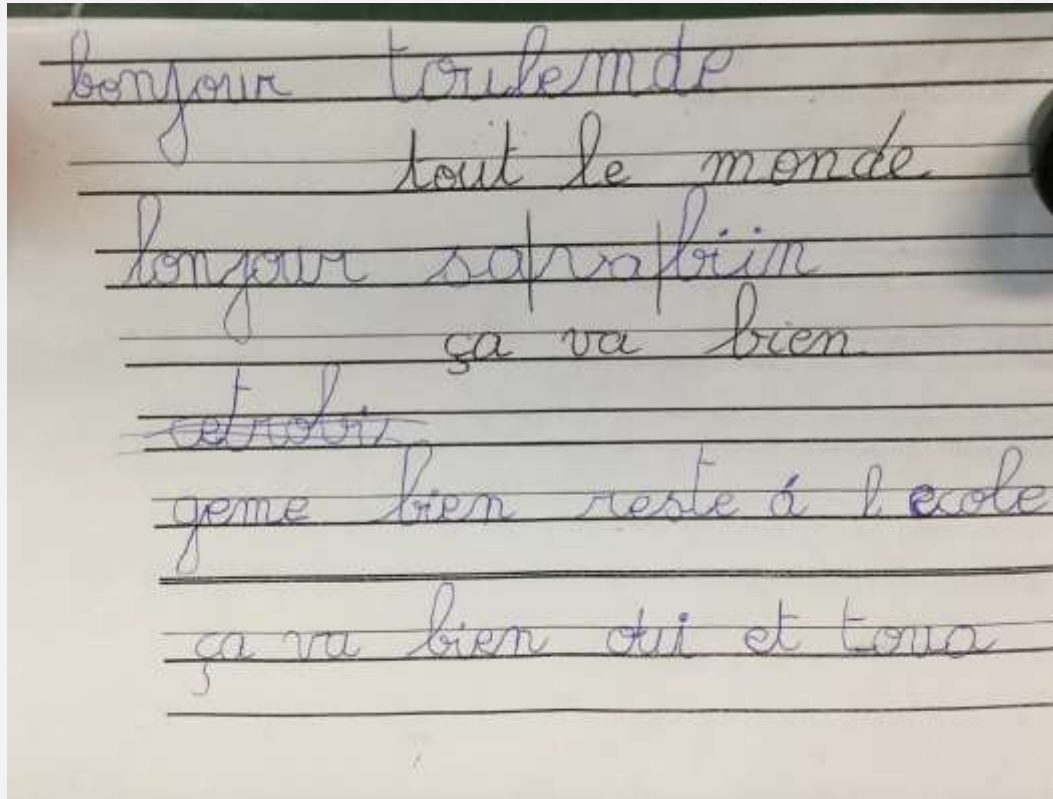 bonjour toulemde
tout le monde
bonjour sa/va/biin
ça va bien
geme bien reste á l ecole
ça va bien oui et toua